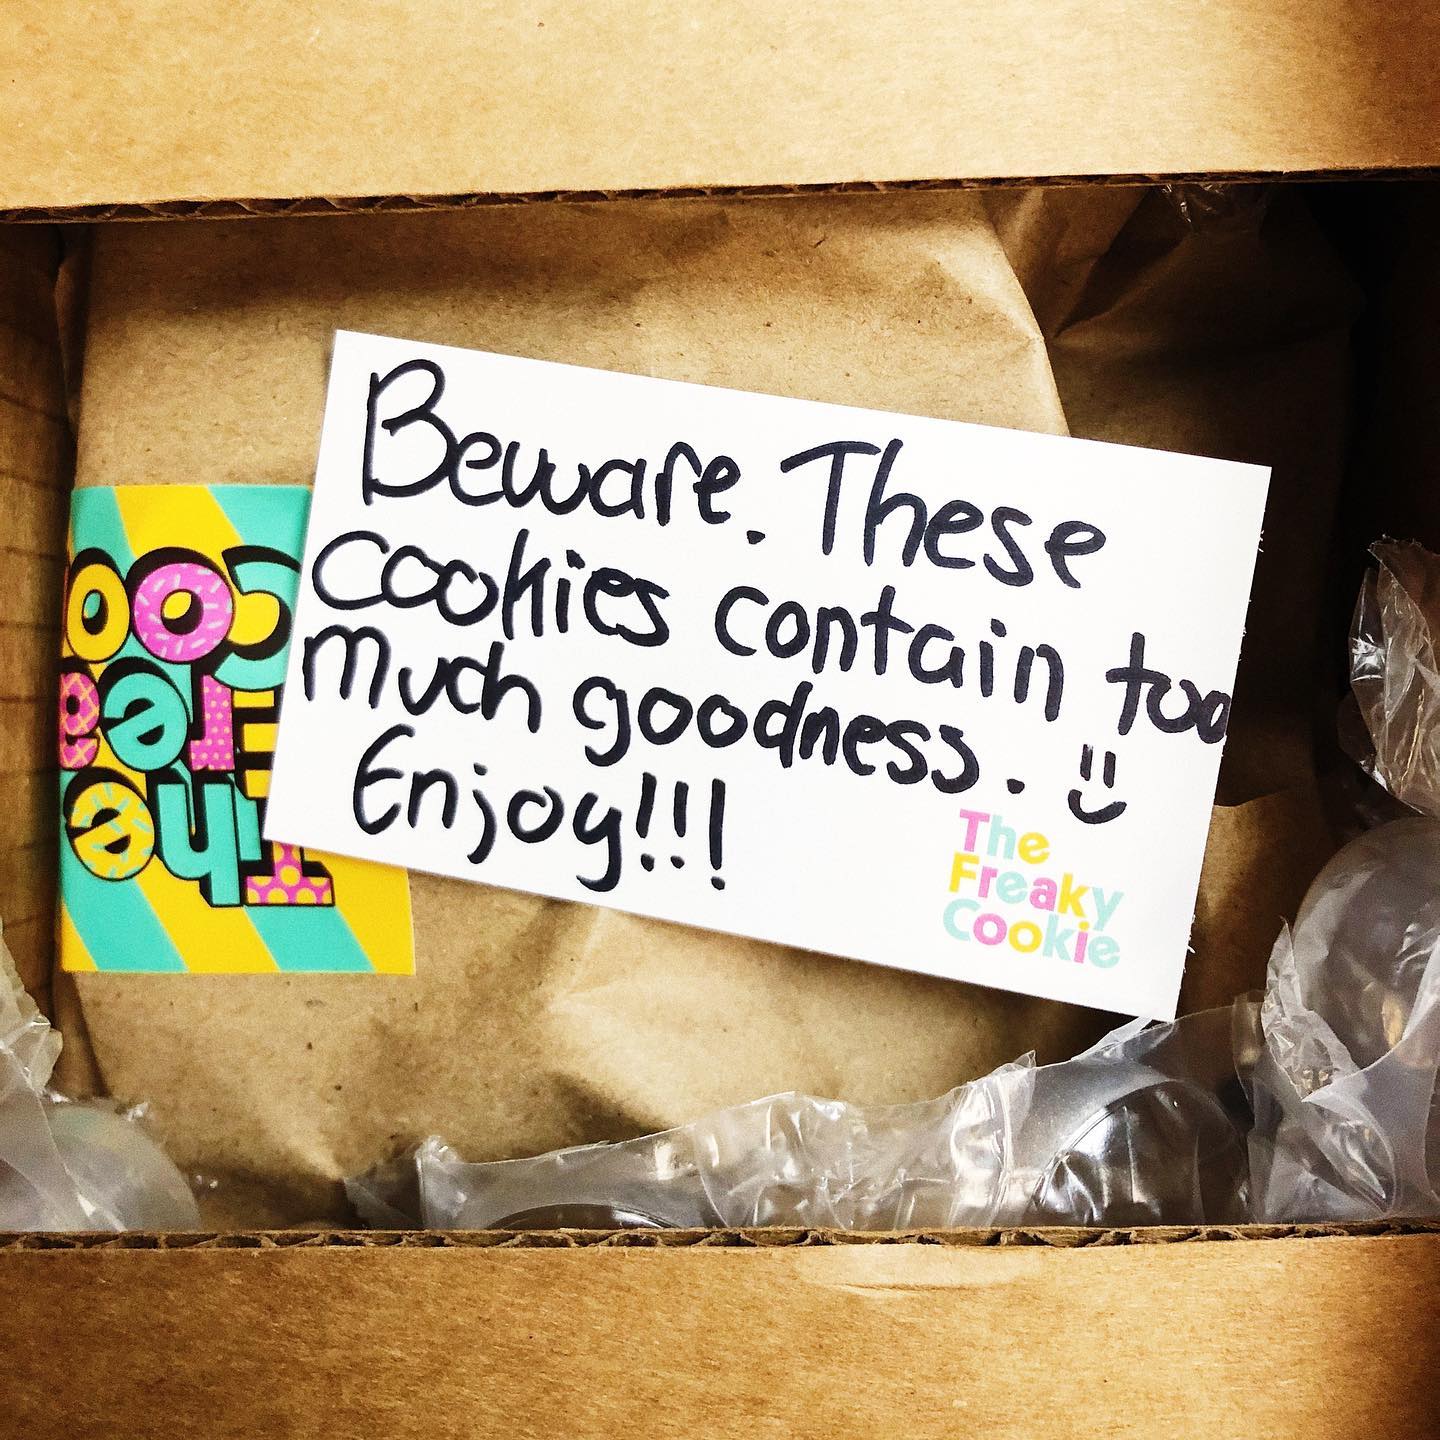 Beware. These
cookies contain too
much goodness. :)
Enjoy!!!
The
Freaky
Cookie
The
Frea
Coo